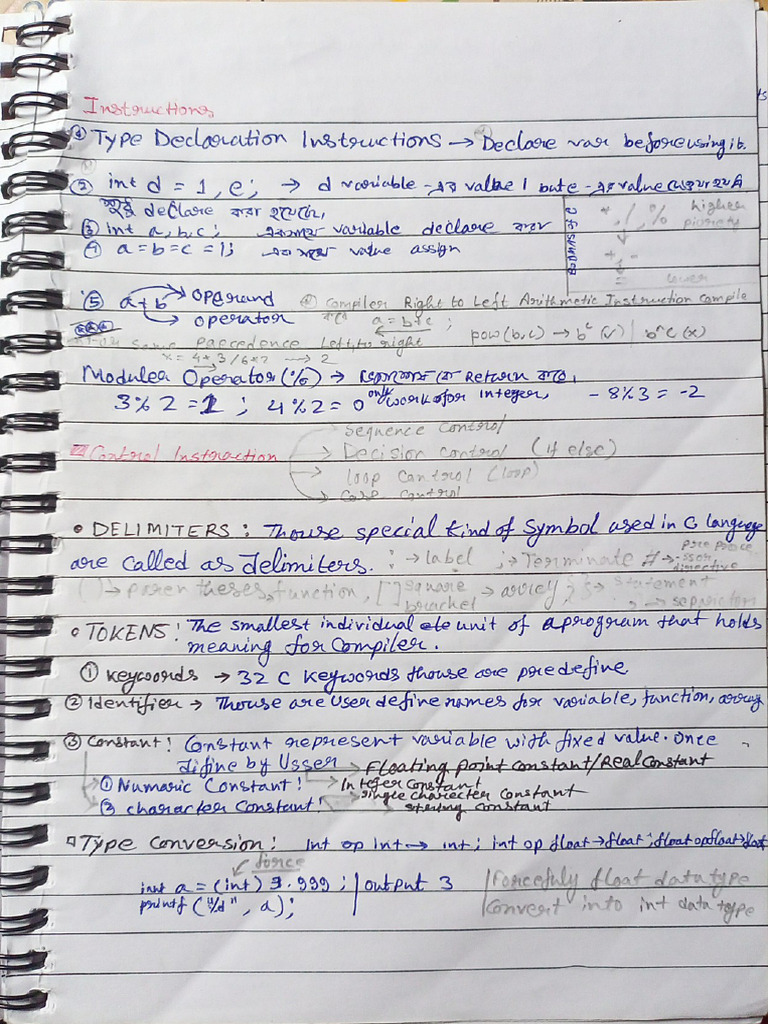 Instructions
① Type Declaration Instructions → Declare var before using it.
② int d = 1, e; → d variable -এর value 1 but e -এর value দেওয়া হয়নি
শুধু declare করা হয়েছে,
* , / , % higher
+ -
=
lower
③ int a, b, c; একসাথে variable declare করা
④ a = b = c = 1; একসাথে value assign
⑤ a + b operand
operator
Compiler Right to Left Arithmetic Instruction compile
করে a = b + c ;
same precedence Left to right
pow(b, c) → b^c (✓) | b^c (x)
x = 4 * 3 / 6 * 2 → 2
Moduler Operator (%) → return করে,
3 % 2 = 1 ; 4 % 2 = 0 only work for integer, - 8 % 3 = -2
Control Instruction
Sequence Control
Decision control (if else)
loop control (loop)
Case control
• DELIMITERS : Thouse special kind of Symbol used in C language
are called as delimiters. : → label ; → Terminate # → preproce
-ssor
directive
( ) → parentheses, function, [ ] square → array { } → statement
bracket , → separator
• TOKENS : The smallest individual unit of a program that holds
meaning for Compiler.
① Keywords → 32 C Keywords thouse are predefine
② Identifier → Thouse are user define names for variable, function, array
③ Constant : Constant represent variable with fixed value. Once
difine by Usser
→ Floating point constant/Real Constant
① Numaric Constant : → Integer constant
② character Constant : → single charecter constant
→ string constant
Type Conversion : int op int → int ; int op float → float ; float op float → float
force
int a = (int) 3.999 ; | output 3
printf ("%d", a);
Forcefuly float data type
Convert into int data type